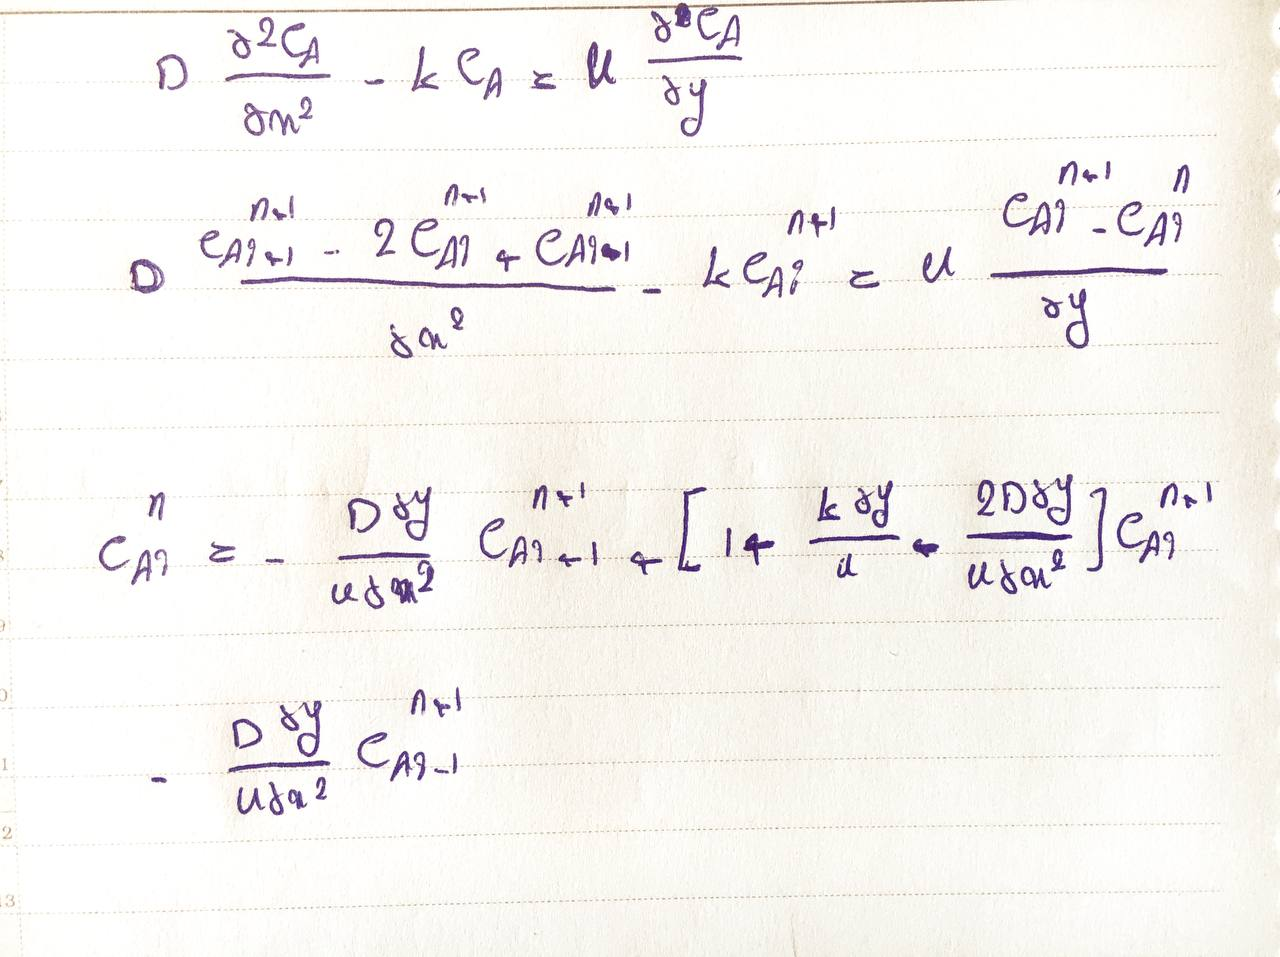 D ∂²C_A/∂x² - k C_A = u ∂C_A/∂y
D (C_Ai+1^n+1 - 2C_Ai^n+1 + C_Ai-1^n+1)/∂x² - k C_Ai^n+1 = u (C_Ai^n+1 - C_Ai^n)/∂y
C_Ai^n = - (D ∂y)/(u ∂x²) C_Ai+1^n+1 + [1 + (k ∂y)/u + (2D ∂y)/(u ∂x²)] C_Ai^n+1
- (D ∂y)/(u ∂x²) C_Ai-1^n+1